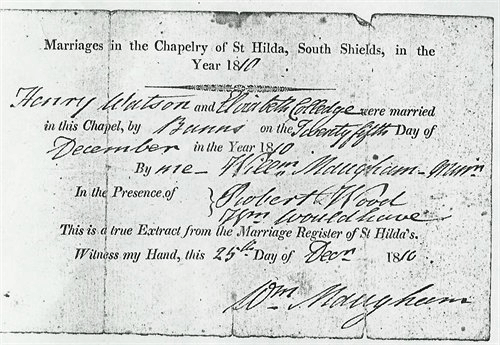 Marriages in the Chapelry of St Hilda, South Shields, in the
Year 1810
Henry Watson and Elizabeth Colledge were married
in this Chapel, by Banns on the Twenty fifth Day of
December in the Year 1810
By me - Willm Maugham - Minr
In the Presence of } Robert Wood
Wm Wouldhave
This is a true Extract from the Marriage Register of St Hilda's.
Witness my Hand, this 25th Day of Decr 1810
Wm Maugham